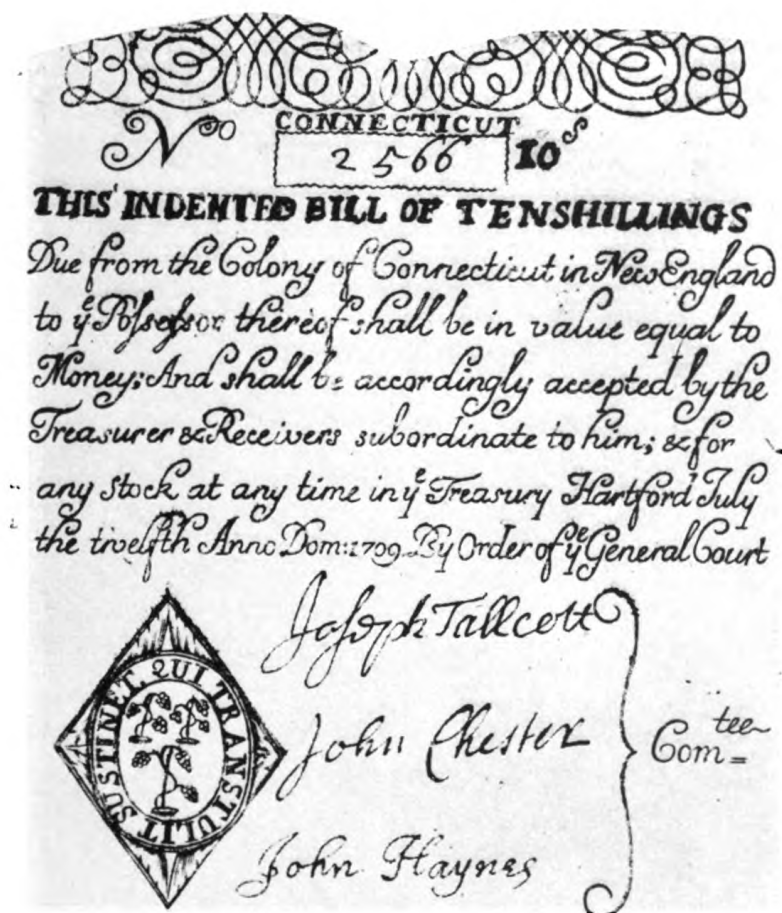 CONNECTICUT
No 2566 10s
THIS INDENTED BILL OF TENSHILLINGS
Due from the Colony of Connecticut in New England
to ye Possessor thereof shall be in value equal to
Money; And shall be accordingly accepted by the
Treasurer & Receivers subordinate to him; & for
any Stock at any time in ye Treasury Hartford July
the twelfth Anno Dom: 1709 By Order of ye General Court
Joseph Tallcott
John Chester
Comtee
John Haynes
SUSTINET QUI TRANSTULIT